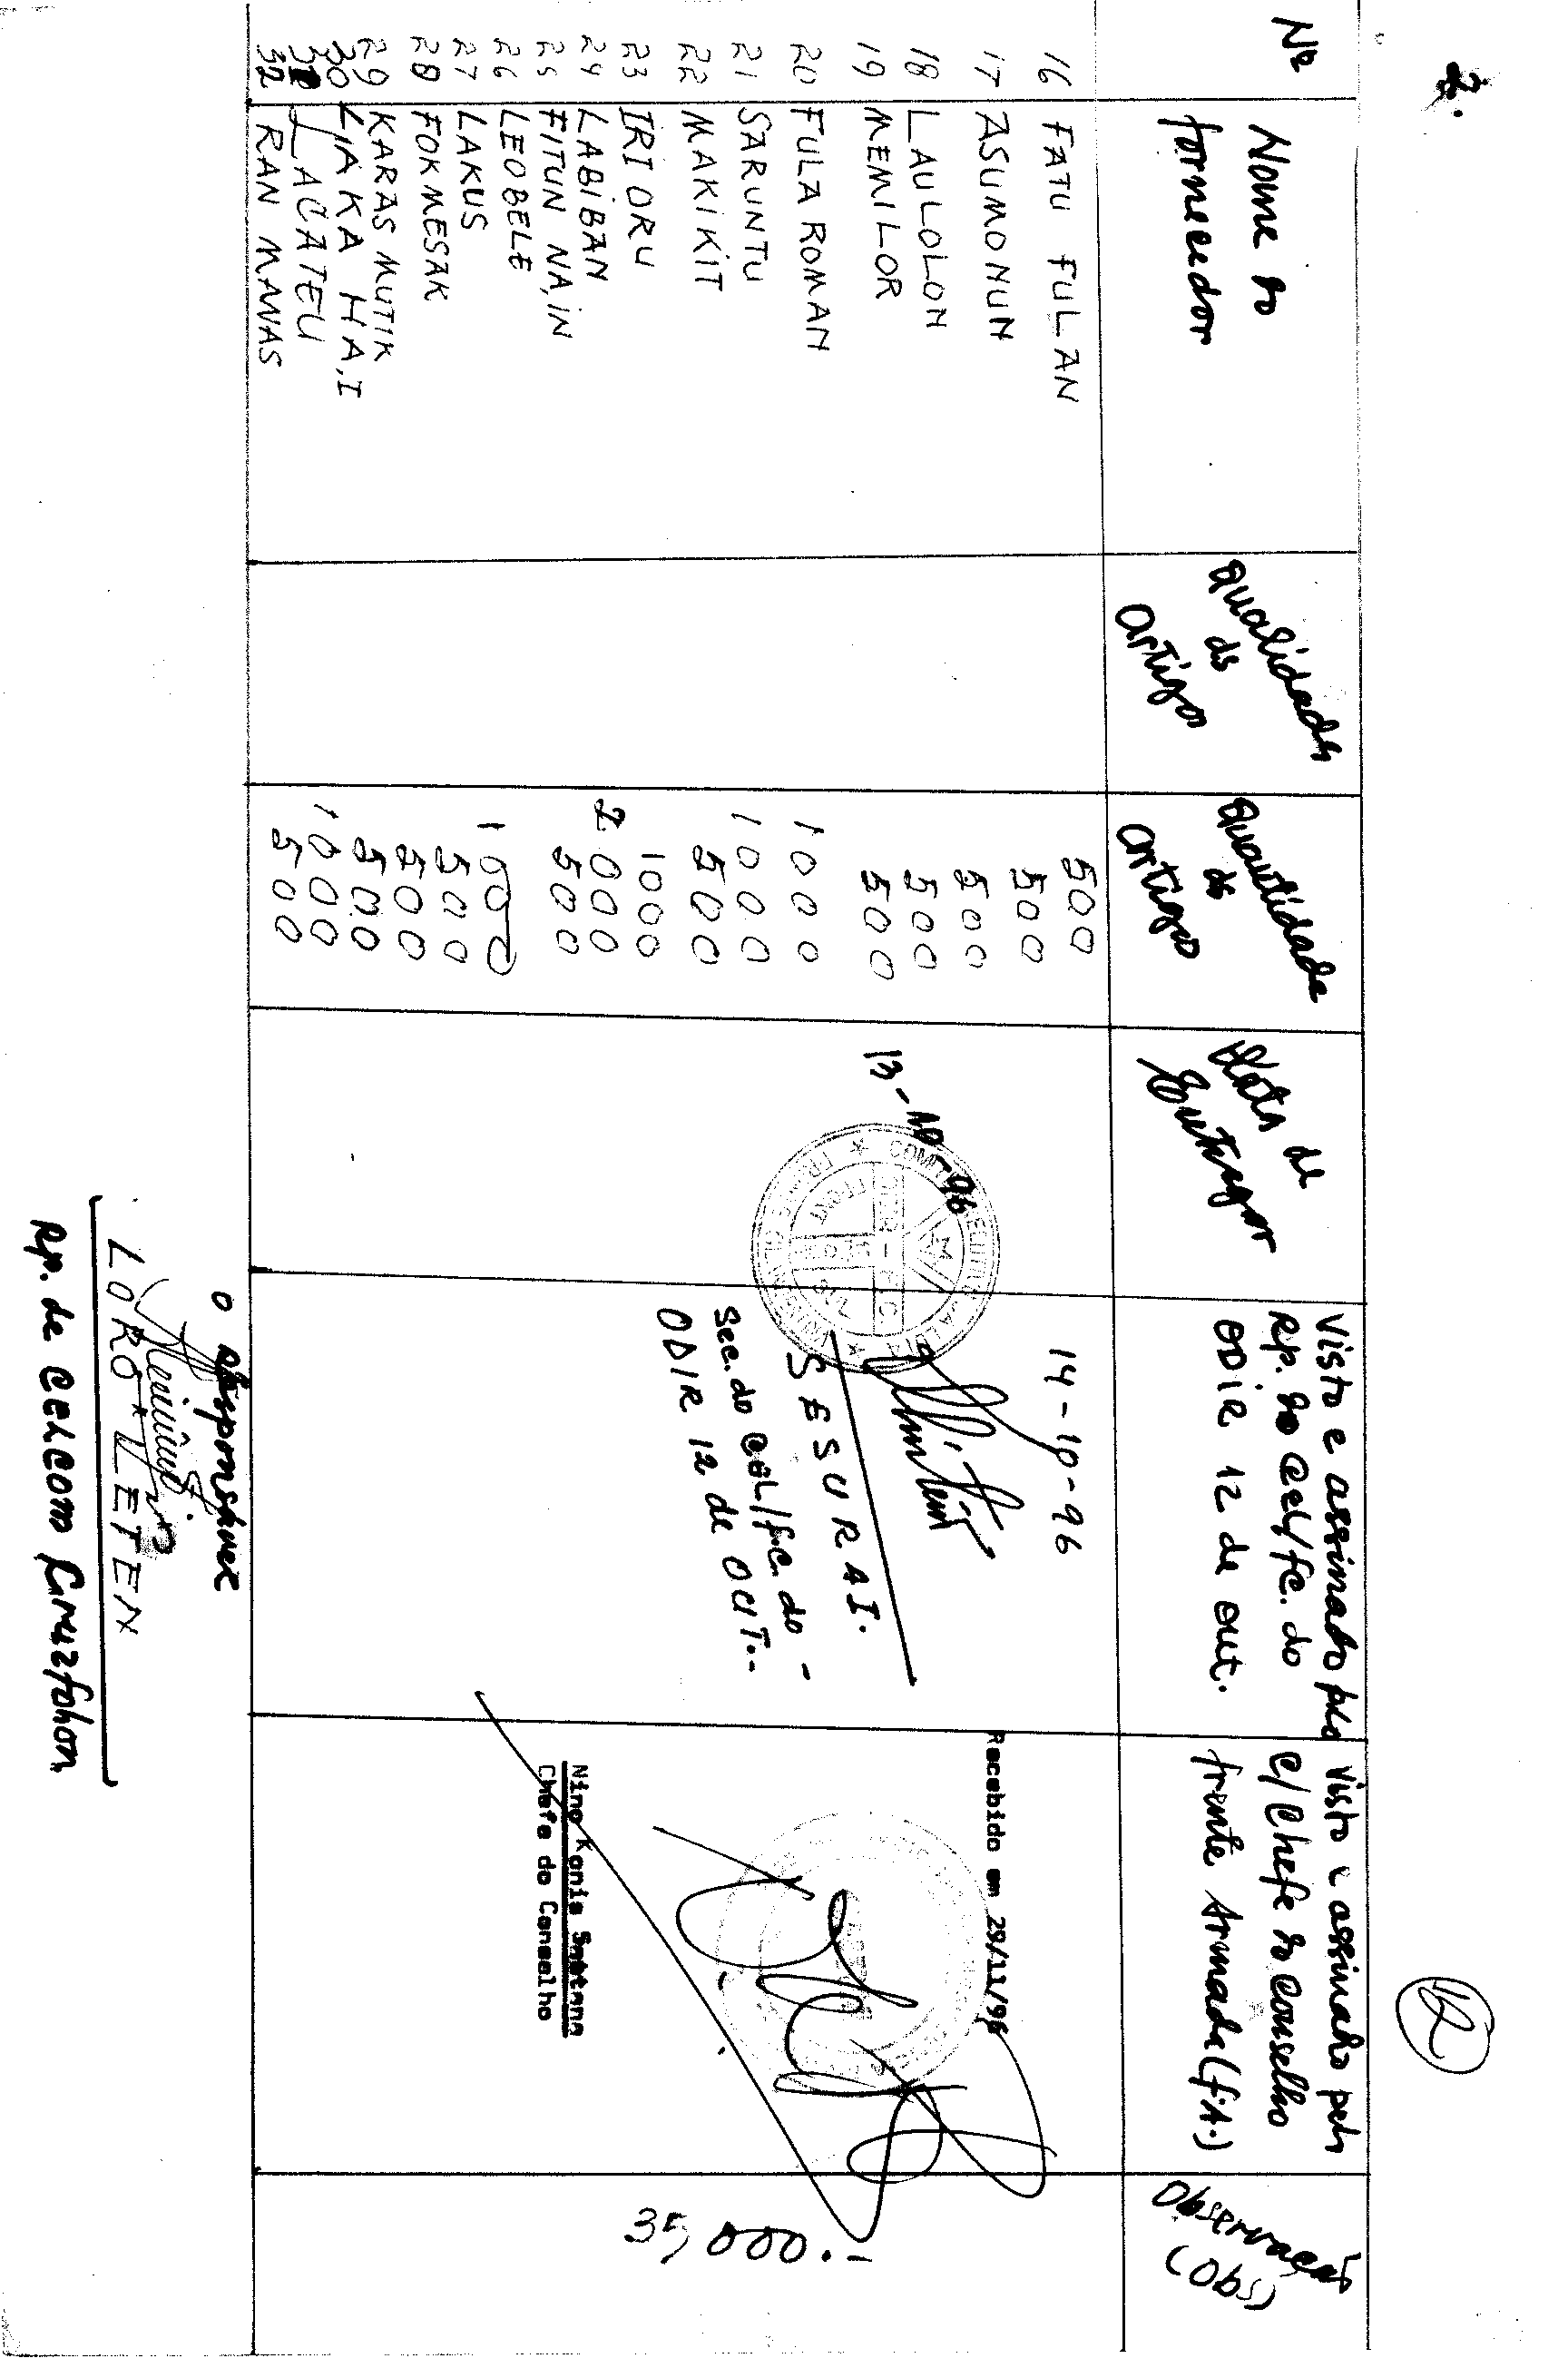 2.
12
Nº
Nome do
fornecedor
qualidade
de
artigo
quantidade
de
artigo
Data de
Entregar
Visto e assinado plo
Rp. do Cel/fc. do
ODIR 12 de out.
Visto e assinado pelo
C/Chefe do Conselho
frente Armada (f.A.)
Observação
(Obs)
16 FATU FULAN 500
17 ASUMONUN 500
18 LAULOLON 500
19 MEMILOR 500
500
20 FULA ROMAN 1000
21 SARUNTU 1000
22 MAKIKIT 500
23 IRI ORU 1000
24 LABIBAN 2.000
25 FITUN NA,IN 500
26 LEOBELE 1000
27 LAKUS 500
28 FOKMESAK 500
29 KARAS MUTIK 500
30 LIAKA HA,I 1000
31 LACATEU 500
32 RAN MANAS
13-10-96
14-10-96
SESURAI.
Sec. do CEL/f.c. do -
ODIR 12 de OUT.-
Recebido em 29/11/96
Nino Konis Santana
Chefe do Conselho
35,000.-
o Responsável
LORO LETEN
Rp. de CELCOM Cruzfohon